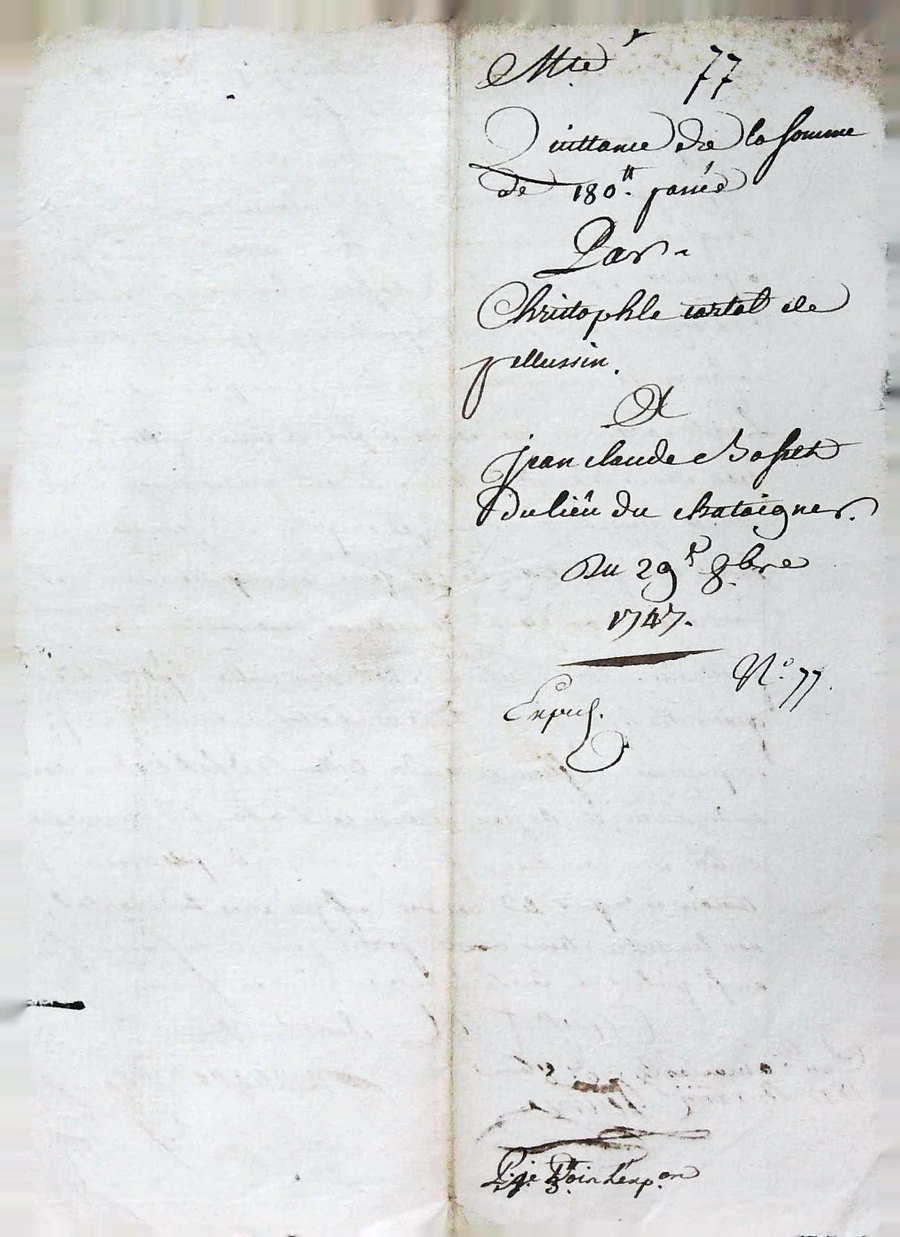 77
Quittance de la somme
de 180ᵗᵗ passée
Par
Christophle cartal de
pellussin.
A
jean claude Bosset
du lieu du chataigner.
Du 29ᵉ 8bre
1747.
N.º 77.
Exped.